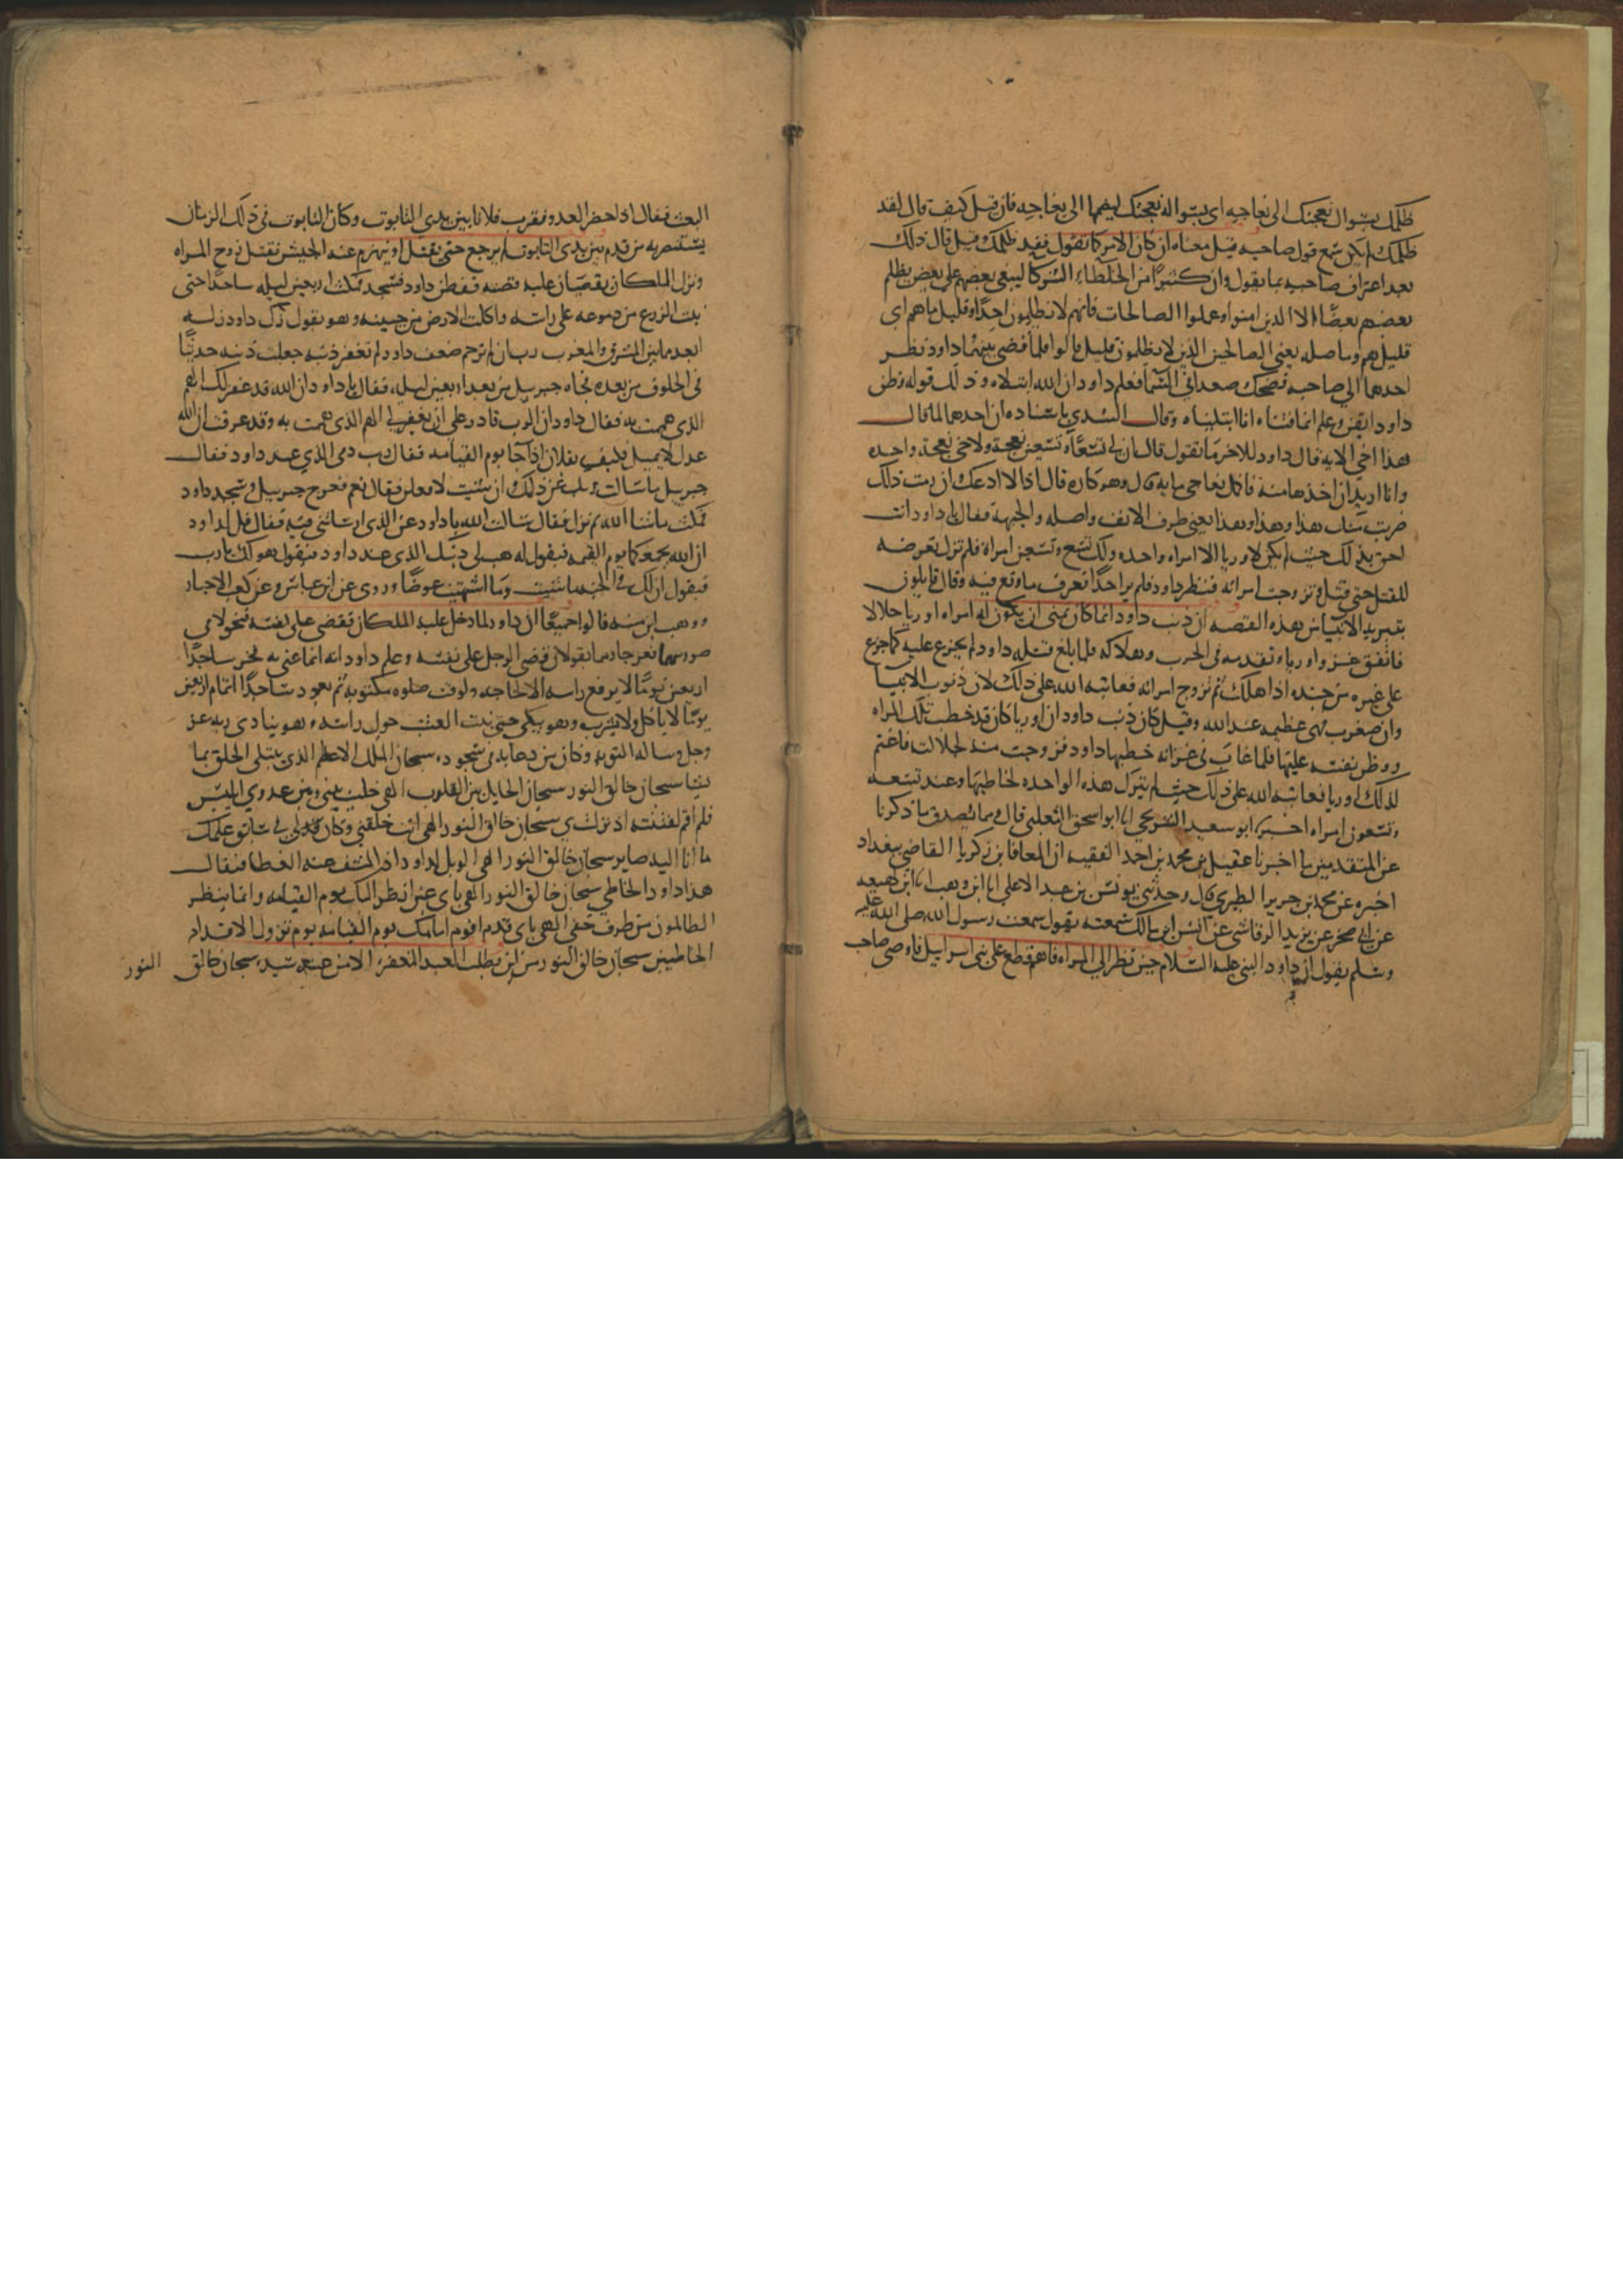 ظلمك بسوال نعجتك الى نعاجه اى بسواله نعجتك ليضمها الى نعاجه فان قيل كيف قال لقد
ظلمك ولم يكن سمع قول صاحبه قيل معناه ان كان الامر كما تقول فقد ظلمك وقيل قال ذلك
بعد اعتراف صاحبه بما يقول وان كثيرًا من الخلطاء الشركا ليبغى بعضهم على بعض يظلم
بعضهم بعضًا الا الذين امنوا وعملوا الصالحات فانهم لا يظلمون احدًا وقليل ما هم اى
قليل هم وما صله يعنى الصالحين الذين لا يظلمون قليل قالوا فلما قضى بينهما داود نظر
احدهما الى صاحبه فضحك وصعدا فى السما فعلم داود ان الله ابتلاه وذلك قوله وظن
داود ايقن وعلم انما فتناه انما ابتليناه وقال السدى باسناده ان احدهما لما قال
هذا اخى الايه قال داود للاخر ما تقول قال ان لى تسعًا وتسعين نعجة ولاخى نعجة واحده
وانا اريد ان اخذها منه فاكمل نعاجى مايه قال وهو كاره قال اذا لا ادعك وان رمت ذلك
ضربت منك هذا وهذا وهذا يعنى طرف الانف واصله والجبهة فقال يا داود انت
احق بذلك حيث لم يكن لاوريا الا امراه واحده ولك تسع وتسعين امراة فلم تزل تعرضه
للقتل حتى قتل وتزوجت امراته فنظر داود فلم ير احدًا فعرف ما وقع فيه وقال قايلون
بتنزيه الانبيا فى هذه القصه ان ذنب داود انما كان تمنى ان يكون له امراه اوريا حلالا
فاتفق غزو اوريا وتقدمه فى الحرب وهلاكه فلما بلغ قتله داود لم يجزع عليه كما جزع
على غيره من جنده اذا هلك ثم تزوج امراته فعاتبه الله على ذلك لان ذنوب الانبيا
وان صغرت فهى عظيمه عند الله وقيل كان ذنب داود ان اوريا كان قد خطب تلك المراه
ووطن نفسه عليها فلما غاب فى غزاته خطبها داود فزوجت منه لجلالته فاغتم
لذلك اوريا فعاتبه الله على ذلك حيث لم يترك هذه الواحده لخاطبها وعنده تسعه
وتسعون امراه اخبرنا ابو سعيد الشريحى انا ابو اسحق الثعلبى قال ومما يصدق ما ذكرنا
عن المتقدمين ما اخبرنا عقيل بن محمد بن احمد الفقيه ان المعافا بن زكريا القاضى ببغداد
اخبره عن محمد بن جرير الطبرى قال وحدثنى يونس بن عبد الاعلى انا ابن وهب انا ابن لهيعه
عن ابى صخر عن يزيد الرقاشى عن انس ابن مالك سمعته يقول سمعت رسول الله صلى الله عليه
وسلم يقول ان داود النبى عليه السلام حين نظر الى المراه فاهم قطع على بنى اسراييل فاوصى صاحب
البعث فقال اذا حضر العدو فقرب فلانا بين يدى التابوت وكان التابوت فى ذلك الزمان
يستنصر به من قدم بين يدى التابوت لم يرجع حتى يقتل او ينهزم عنه الجيش فقتل زوج المراه
ونزل الملكان يقصان عليه قصته ففطن داود فسجد فمكث اربعين ليله ساجدًا حتى
نبت الزرع من دموعه على راسه واكلت الارض من جبينه وهو يقول زل داود زلة
ابعد ما بين المشرق والمغرب رب ان لم ترحم ضعف داود ولم تغفر ذنبه جعلت ذنبه حديثًا
فى الخلوف من بعده فجاه جبريل من بعد اربعين ليله فقال يا داود ان الله قد غفر لك الهم
الذى هممت به فقال داود ان الرب قادر على ان يغفر لى الهم الذى هممت به وقد عرفت ان الله
عدل لا يميل فكيف بفلان اذا جا يوم القيامه فقال رب دمى الذى عند داود فقال
جبريل ما سالت ربك عن ذلك وان شيت لافعلن فقال نعم فعرج جبريل وسجد داود
فمكث ما شا الله ثم نزل فقال سالت الله يا داود عن الذى ارسلتنى فيه فقال قل لداود
ان الله يجمعكما يوم القيمه فيقول له هب لى دمك الذى عند داود فيقول هو لك يا رب
فيقول ان لك فى الجنه ما شيت وما اشتهيت عوضًا وروى عن ابن عباس وعن كعب الاحبار
ووهب ابن منبه قالوا جميعًا ان داود لما دخل عليه الملكان فقضى على نفسه فتحولا فى
صورتهما فعرجا وهما يقولان قضى الرجل على نفسه وعلم داود انه انما عنى به فخر ساجدًا
اربعين يومًا لا يرفع راسه الا لحاجه ولوقت صلوه مكتوبه ثم يعود ساجدًا تمام اربعين
يومًا لا ياكل ولا يشرب وهو يبكى حتى نبت العشب حول راسه وهو ينادى ربه عز
وجل وساله التوبه وكان من دعايه فى سجوده سبحان الملك الاعظم الذى يبتلى الخلق بما
يشا سبحان خالق النور سبحان الحايل بين القلوب الهى خليت بينى وبين عدوى ابليس
فلم اقم لفتنته اذ نزلت بى سبحان خالق النور الهى انت خلقتنى وكان فى سابق علمك
ما انا اليه صاير سبحان خالق النور الهى الويل لداود اذا كشف عنه الغطا فيقال
هذا داود الخاطى سبحان خالق النور الهى باى عين انظر اليك يوم القيامه وانما ينظر
الظالمون من طرف خفى الهى باى قدم اقوم امامك يوم القيامه يوم تزول الاقدام
الخاطيين سبحان خالق النور من اين يطلب العبد المغفره الا من عند سيده سبحان خالق
النور